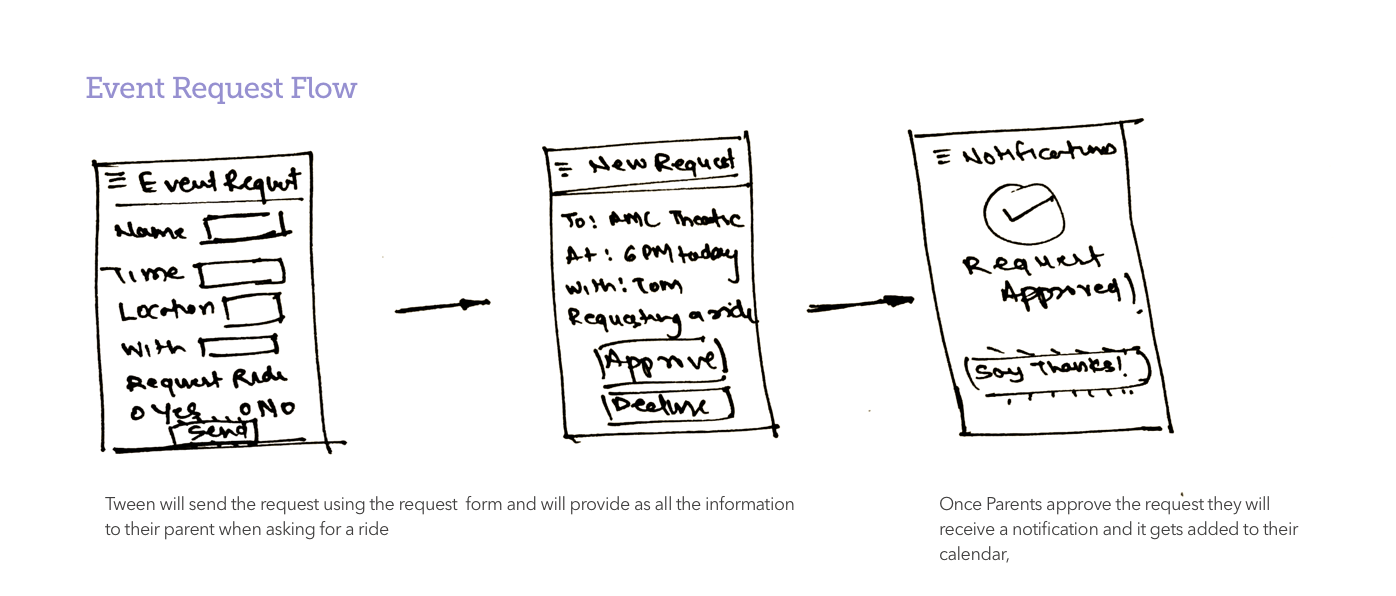 Event Request Flow
Event Request
Name
Time
Location
With
Request Ride
Yes No
Send
New Request
To: AMC Theatre
At: 6 PM today
With: Tom
Requesting a ride
Approve
Decline
Notifications
Request
Approved!
Say Thanks!
Tween will send the request using the request form and will provide as all the information
to their parent when asking for a ride
Once Parents approve the request they will
receive a notification and it gets added to their
calendar,